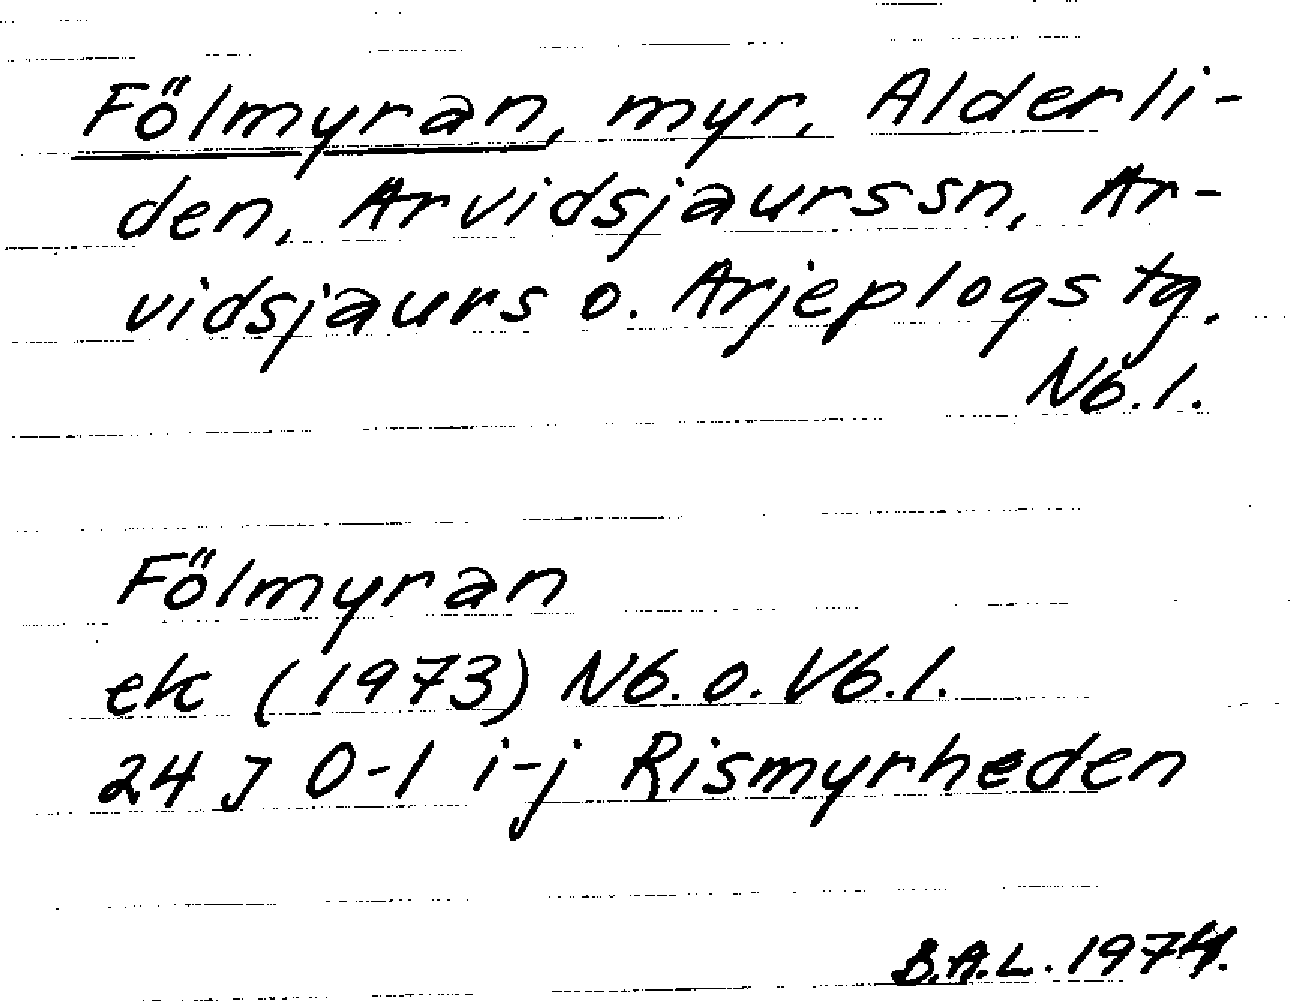 Fölmyran, myr, Alderli-
den, Arvidsjaurs sn, Ar-
vidsjaurs o. Arjeplogs tg.
Nb. l.
Fölmyran
ek (1973) Nb. o. Vb. l.
24 J 0-1 i-j Rismyrheden
B.A.L. 1974.